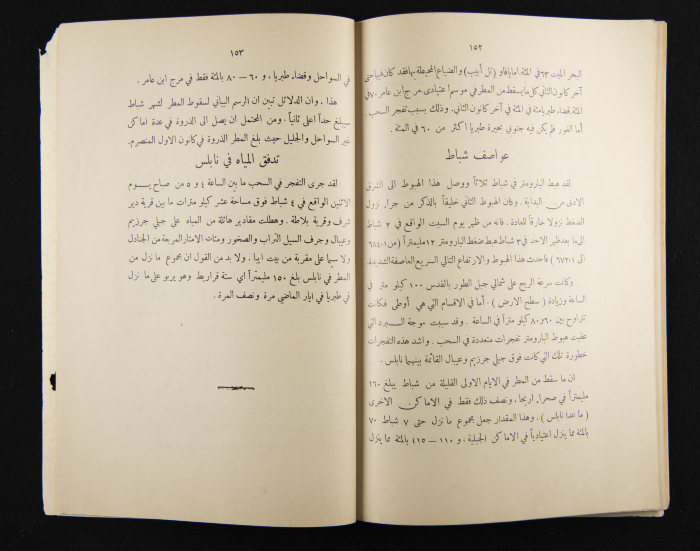 ١٥٢
البحر الميت ٦٣ في المئة. اما يافا و (تل أبيب) والضياع المحيطة بها فقد كان فيها حتى
آخر كانون الثاني كل ما يسقط من المطر في موسم اعتيادي. مرج ابن عامر ٧٠ في
المئة. قضاء طبريا مئة في المئة في آخر كانون الثاني. وذلك بسبب تفجر السحب.
أما الغور فلم يكن فيه جنوبي بحيرة طبريا اكثر من ٦٠ في المئة.
عواصف شباط
لقد هبط البارومتر في شباط ثلاثاً ووصل هذا الهبوط الى الشرق
الادنى من البداية. وكان الهبوط الثاني خليقاً بالذكر من جراء نزول
الضغط نزولا خارقاً للعادة. فانه من ظهر يوم السبت الواقع في ٢ شباط
الى ما بعد ظهر الاحد في ٣ شباط هبط ضغط البارومتر ١٢ مليمتراً (من ٦٨٤٠١
الى ٦٧٢٠١) فاحدث هذا الهبوط والارتفاع التالي السريع العاصفة الشديدة.
وكانت سرعة الريح على شمالي جبل الطور بالقدس ١٠٠ كيلو متر في
الساعة وزيادة (سطح الارض). أما في الاقسام التي هي أوطى فكانت
تتراوح بين ٦٠ و ٨٠ كيلو متراً في الساعة. وقد سببت موجة البرد التي
عقبت هبوط البارومتر تفجرات متعددة في السحب. واشد هذه التفجرات
خطورة تلك التي كانت فوق جبلي جرزيم وعيبال القائمة بينهما نابلس.
ان ما سقط من المطر في الايام الاولى القليلة من شباط يبلغ ١٦٠
مليمتراً في صحراء اريحا، ونصف ذلك فقط في الاماكن الاخرى
(ما عدا نابلس). وهذا المقدار جعل مجموع ما نزل حتى ٧ شباط ٧٠
بالمئة مما ينزل اعتيادياً في الاماكن الجبلية، و ١١٠ — ١١٥ بالمئة مما ينزل
١٥٣
في السواحل وقضاء طبريا، و ٦٠ — ٨٠ بالمئة فقط في مرج ابن عامر.
هذا، وان الدلائل تبين ان الرسم البياني لسقوط المطر لشهر شباط
سيبلغ حداً اعلى ثانياً. ومن المحتمل ان يصل الى الذروة في عدة اماكن
غير السواحل والجليل حيث بلغ المطر الذروة في كانون الاول المنصرم.
تدفق المياه في نابلس
لقد جرى التفجر في السحب ما بين الساعة ٤ و ٥ من صباح يوم
الاثنين الواقع في ٤ شباط فوق مساحة عشر كيلو مترات ما بين قرية دير
شرف وقرية بلاطة. وهطلت مقادير هائلة من المياه على جبلي جرزيم
وعيبال وجرف السيل التراب والصخور ومئات الامتار المربعة من الجنادل
ولا سيما على مقربة من بيت ايبا. ولا بد من القول ان مجموع ما نزل من
المطر في نابلس بلغ ١٥٠ مليمتراً أي ستة قراريط وهو يربو على ما نزل
في طبريا في ايار الماضي مرة ونصف المرة.